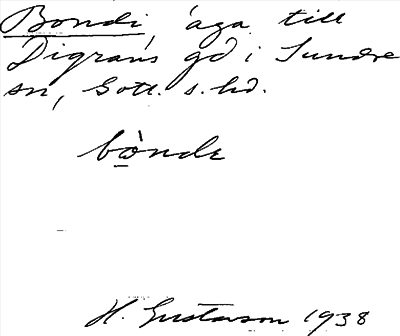 Bondi, äga till
Digrans gd i Sundre
sn, Gotl. s. hd.
bo̲̊nde
H. Gustavson 1938